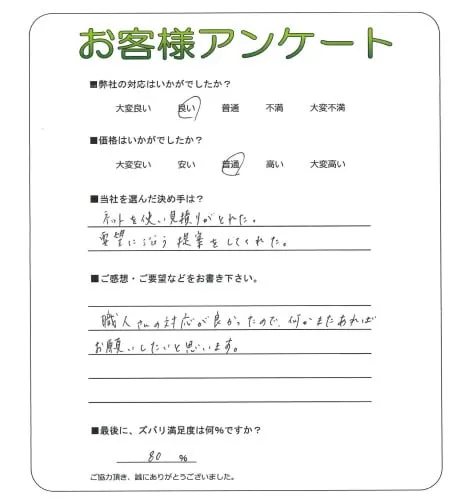 お客様アンケート
■弊社の対応はいかがでしたか?
大変良い 良い 普通 不満 大変不満
■価格はいかがでしたか?
大変安い 安い 普通 高い 大変高い
■当社を選んだ決め手は?
ネットを使い見積りがとれた。
要望に沿う提案をしてくれた。
■ご感想・ご要望などをお書き下さい。
職人さんの対応が良かったので、何かまたあれば
お願いしたいと思います。
■最後に、ズバリ満足度は何%ですか?
80 %
ご協力頂き、誠にありがとうございました。